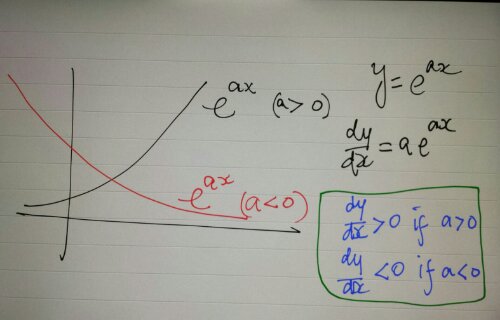 e^{ax} (a>0)
e^{ax} (a<0)
y=e^{ax}
dy/dx=ae^{ax}
dy/dx>0 if a>0
dy/dx<0 if a<0